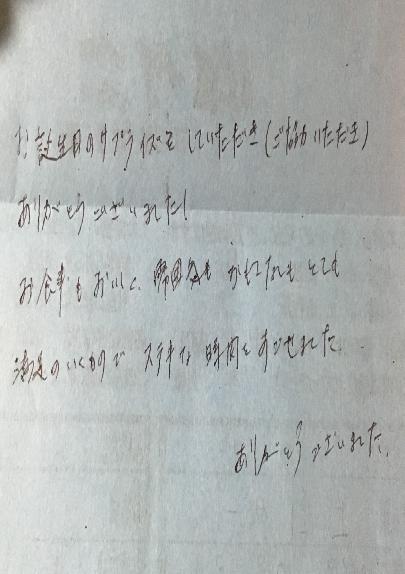 お誕生日のサプライズをしていただき(ご協力いただき)
ありがとうございました!
お食事もおいしく、 おもてなしもとても
満足のいくもので ステキな時間をすごせました。
ありがとうございました。